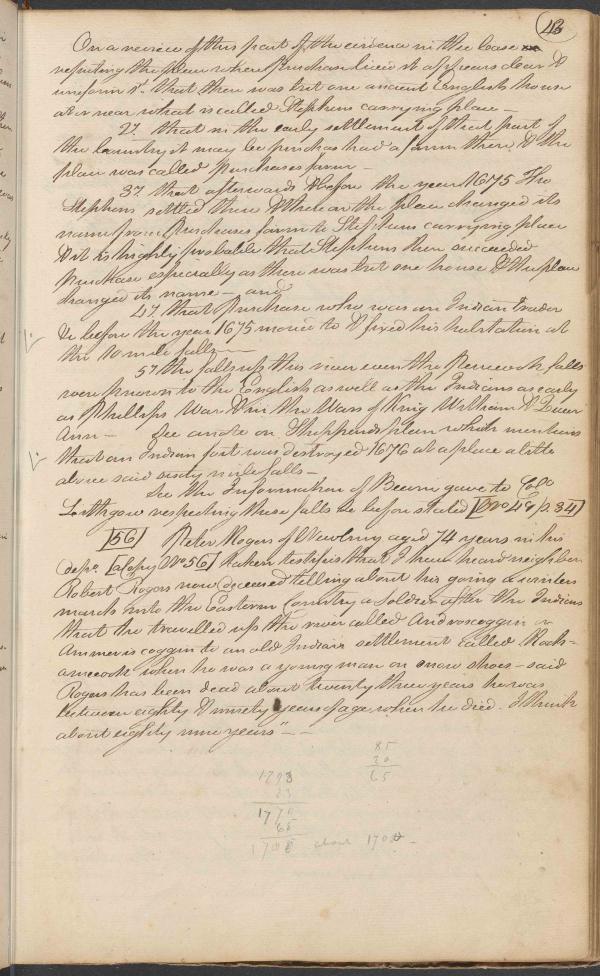 43
On a review of this part of the evidence in this case
respecting the place where Purchase lived it appears clear &
uniform 1st. that there was but one ancient English house
at or near what is called Stephens carrying place —
2d. that in the early settlement of that part of
the Country it may be purchase had a farm there & the
place was called Purchases farm —
3d. that afterwards & before the year 1675 Tho
Stephens settled there & thereon the place changed its
name from Purchases farm to Stephens carrying place
& it is highly probable that Stephens then succeeded
Purchase especially as there was but one house & the place
changed its name — and
4th. that Purchase who was an Indian Trader
& before the year 1675 moved to & fixed his habitation at
the 10 mile falls —
5th the falls up this river even the Rockomeek falls
were known to the English as well as the Indians as early
as Phillips War & in the Wars of King William & Queen
Ann — See a note on Shepperds plan which mentions
that an Indian fort was destroyed 1676 at a place a little
above said sixty mile falls —
See the Information of Beamy gave to Colo
Lithgow respecting these falls as before stated [No 48 / p. 34]
[56] Peter Rogers of Newbury aged 74 years in his
depo. [a Copy No 56] taken testifies that I have heard neighbor
Robert Rogers now deceased telling about his going a winters
march into the Eastern Country a Soldier after the Indians
that he travelled up the river called Androscoggin or
Ammeriscoggin to an old Indian settlement called Rock-
amecook when he was a young man on snow shoes — said
Rogers has been dead about twenty three years he was
between eighty & ninety years of age when he died. I think
about eighty nine years" — —
85
20
65
1793
23
1770
65
1705 about 1700 —